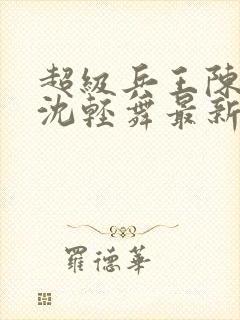 超級兵王陳
沈輕舞最新
羅德華